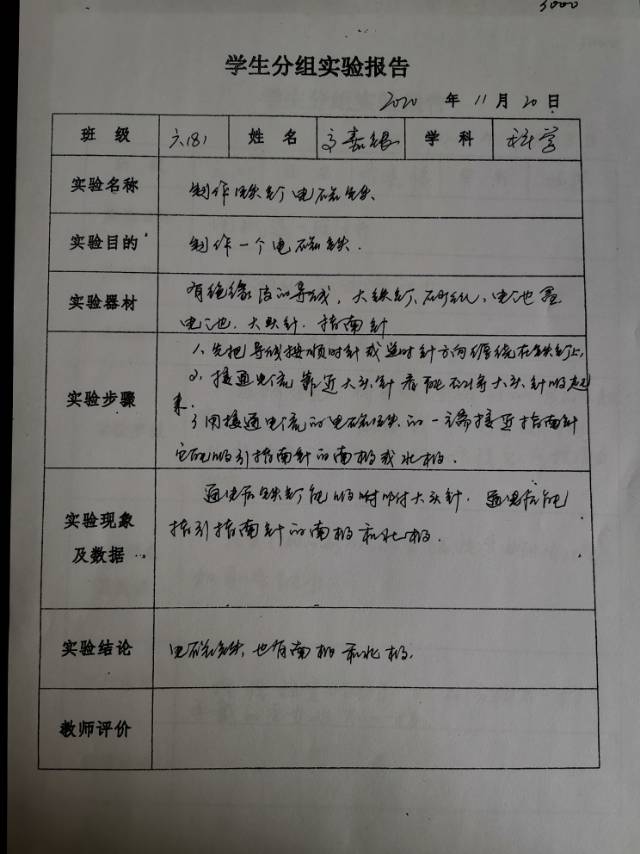 3000
学生分组实验报告
2020 年 11 月 20 日
班 级 六(8) 姓 名 嘉银 学 科 科学
实验名称 制作铁钉电磁铁.
实验目的 制作一个电磁铁.
实验器材 有绝缘洁的导线，大铁钉、砂纸、电池盒
电池. 大头针. 指南针
实验步骤 1、先把导线按顺时针或逆时针方向缠绕在铁钉上，
2、接通电流靠近大头针看能否将大头针吸起
来.
3、用接通电流的电磁铁的一端接近指南针
它能吸引指南针的南极或北极.
实验现象
及数据 通电后铁钉能吸附大头针. 通电后能
指引指南针的南极和北极.
实验结论 电磁铁，也有南极和北极.
教师评价